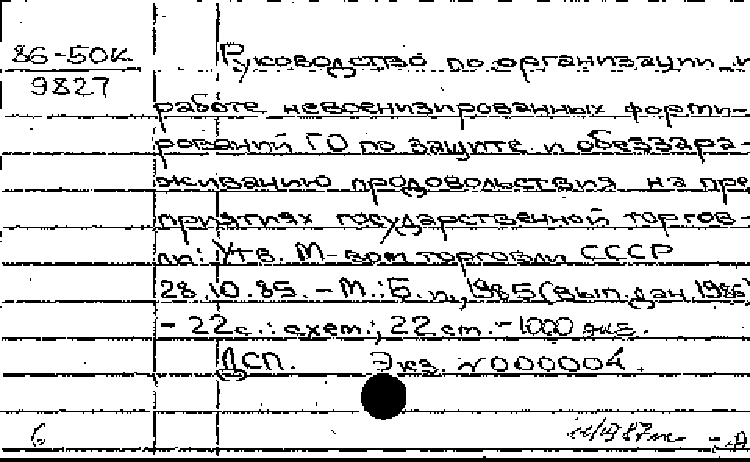 86-50к
9827
Руководство по организации и
работе невоенизированных форми-
рований ГО по защите и обеззара-
живанию продовольствия на пре
приятиях государственной торгов-
ли: Утв. М-вом торговли СССР
28.10.85. - М.: Б. и., 1985 (вып. дан. 1986)
- 22 с.: схем.; 22 см. - 1000 экз.
ДСП. Экз. №000004.
6